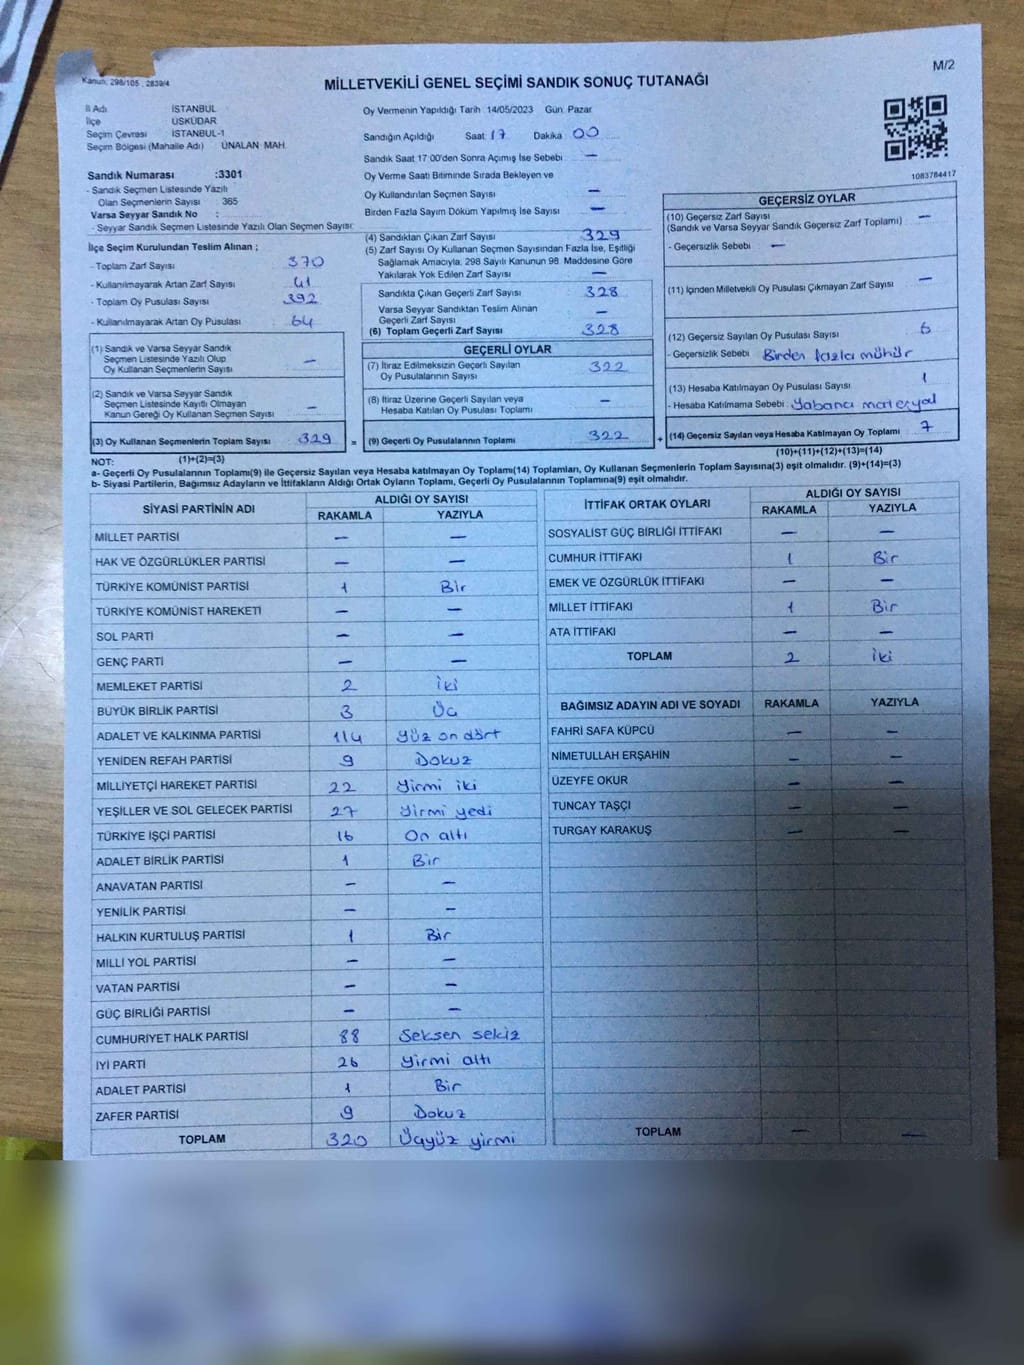 Kanun: 298/105 , 2839/4
M/2
MİLLETVEKİLİ GENEL SEÇİMİ SANDIK SONUÇ TUTANAĞI
İl Adı İSTANBUL
İlçe ÜSKÜDAR
Seçim Çevresi İSTANBUL-1
Seçim Bölgesi (Mahalle Adı) ÜNALAN MAH.
Sandık Numarası :3301
- Sandık Seçmen Listesinde Yazılı
Olan Seçmenlerin Sayısı 365
Varsa Seyyar Sandık No :
- Seyyar Sandık Seçmen Listesinde Yazılı Olan Seçmen Sayısı:
İlçe Seçim Kurulundan Teslim Alınan ;
- Toplam Zarf Sayısı 370
- Kullanılmayarak Artan Zarf Sayısı 41
- Toplam Oy Pusulası Sayısı 392
- Kullanılmayarak Artan Oy Pusulası 64
(1) Sandık ve Varsa Seyyar Sandık
Seçmen Listesinde Yazılı Olup
Oy Kullanan Seçmenlerin Sayısı —
(2) Sandık ve Varsa Seyyar Sandık
Seçmen Listesinde Kayıtlı Olmayan
Kanun Gereği Oy Kullanan Seçmen Sayısı —
(3) Oy Kullanan Seçmenlerin Toplam Sayısı 329 =
(1)+(2)=(3)
Oy Vermenin Yapıldığı Tarih : 14/05/2023 Gün: Pazar
Sandığın Açıldığı Saat 17 Dakika 00
Sandık Saat 17:00'den Sonra Açılmış İse Sebebi —
Oy Verme Saati Bitiminde Sırada Bekleyen ve
Oy Kullandırılan Seçmen Sayısı —
Birden Fazla Sayım Döküm Yapılmış İse Sayısı —
(4) Sandıktan Çıkan Zarf Sayısı 329
(5) Zarf Sayısı Oy Kullanan Seçmen Sayısından Fazla İse, Eşitliği
Sağlamak Amacıyla, 298 Sayılı Kanunun 98. Maddesine Göre
Yakılarak Yok Edilen Zarf Sayısı —
Sandıkta Çıkan Geçerli Zarf Sayısı 328
Varsa Seyyar Sandıktan Teslim Alınan
Geçerli Zarf Sayısı —
(6) Toplam Geçerli Zarf Sayısı 328
GEÇERLİ OYLAR
(7) İtiraz Edilmeksizin Geçerli Sayılan
Oy Pusulalarının Sayısı 322
(8) İtiraz Üzerine Geçerli Sayılan veya
Hesaba Katılan Oy Pusulası Toplamı —
(9) Geçerli Oy Pusulalarının Toplamı 322 +
1083784417
GEÇERSİZ OYLAR
(10) Geçersiz Zarf Sayısı
(Sandık ve Varsa Seyyar Sandık Geçersiz Zarf Toplamı) —
- Geçersizlik Sebebi —
(11) İçinden Milletvekili Oy Pusulası Çıkmayan Zarf Sayısı —
(12) Geçersiz Sayılan Oy Pusulası Sayısı 6
- Geçersizlik Sebebi Birden fazla mühür
(13) Hesaba Katılmayan Oy Pusulası Sayısı 1
- Hesaba Katılmama Sebebi Yabancı materyal
(14) Geçersiz Sayılan veya Hesaba Katılmayan Oy Toplamı 7
(10)+(11)+(12)+(13)=(14)
NOT:
a- Geçerli Oy Pusulalarının Toplamı(9) ile Geçersiz Sayılan veya Hesaba katılmayan Oy Toplamı(14) Toplamları, Oy Kullanan Seçmenlerin Toplam Sayısına(3) eşit olmalıdır. (9)+(14)=(3)
b- Siyasi Partilerin, Bağımsız Adayların ve İttifakların Aldığı Ortak Oyların Toplamı, Geçerli Oy Pusulalarının Toplamına(9) eşit olmalıdır.
SİYASİ PARTİNİN ADI ALDIĞI OY SAYISI
RAKAMLA YAZIYLA
MİLLET PARTİSİ — —
HAK VE ÖZGÜRLÜKLER PARTİSİ — —
TÜRKİYE KOMÜNİST PARTİSİ 1 Bir
TÜRKİYE KOMÜNİST HAREKETİ — —
SOL PARTİ — —
GENÇ PARTİ — —
MEMLEKET PARTİSİ 2 İki
BÜYÜK BİRLİK PARTİSİ 3 Üç
ADALET VE KALKINMA PARTİSİ 114 Yüz on dört
YENİDEN REFAH PARTİSİ 9 Dokuz
MİLLİYETÇİ HAREKET PARTİSİ 22 Yirmi iki
YEŞİLLER VE SOL GELECEK PARTİSİ 27 Yirmi yedi
TÜRKİYE İŞÇİ PARTİSİ 16 On altı
ADALET BİRLİK PARTİSİ 1 Bir
ANAVATAN PARTİSİ — —
YENİLİK PARTİSİ — —
HALKIN KURTULUŞ PARTİSİ 1 Bir
MİLLİ YOL PARTİSİ — —
VATAN PARTİSİ — —
GÜÇ BİRLİĞİ PARTİSİ — —
CUMHURİYET HALK PARTİSİ 88 Seksen sekiz
İYİ PARTİ 26 Yirmi altı
ADALET PARTİSİ 1 Bir
ZAFER PARTİSİ 9 Dokuz
TOPLAM 320 Üçyüz yirmi
İTTİFAK ORTAK OYLARI ALDIĞI OY SAYISI
RAKAMLA YAZIYLA
SOSYALİST GÜÇ BİRLİĞİ İTTİFAKI — —
CUMHUR İTTİFAKI 1 Bir
EMEK VE ÖZGÜRLÜK İTTİFAKI — —
MİLLET İTTİFAKI 1 Bir
ATA İTTİFAKI — —
TOPLAM 2 İki
BAĞIMSIZ ADAYIN ADI VE SOYADI RAKAMLA YAZIYLA
FAHRİ SAFA KÜPCÜ — —
NİMETULLAH ERŞAHİN — —
ÜZEYFE OKUR — —
TUNCAY TAŞÇI — —
TURGAY KARAKUŞ — —
TOPLAM — —